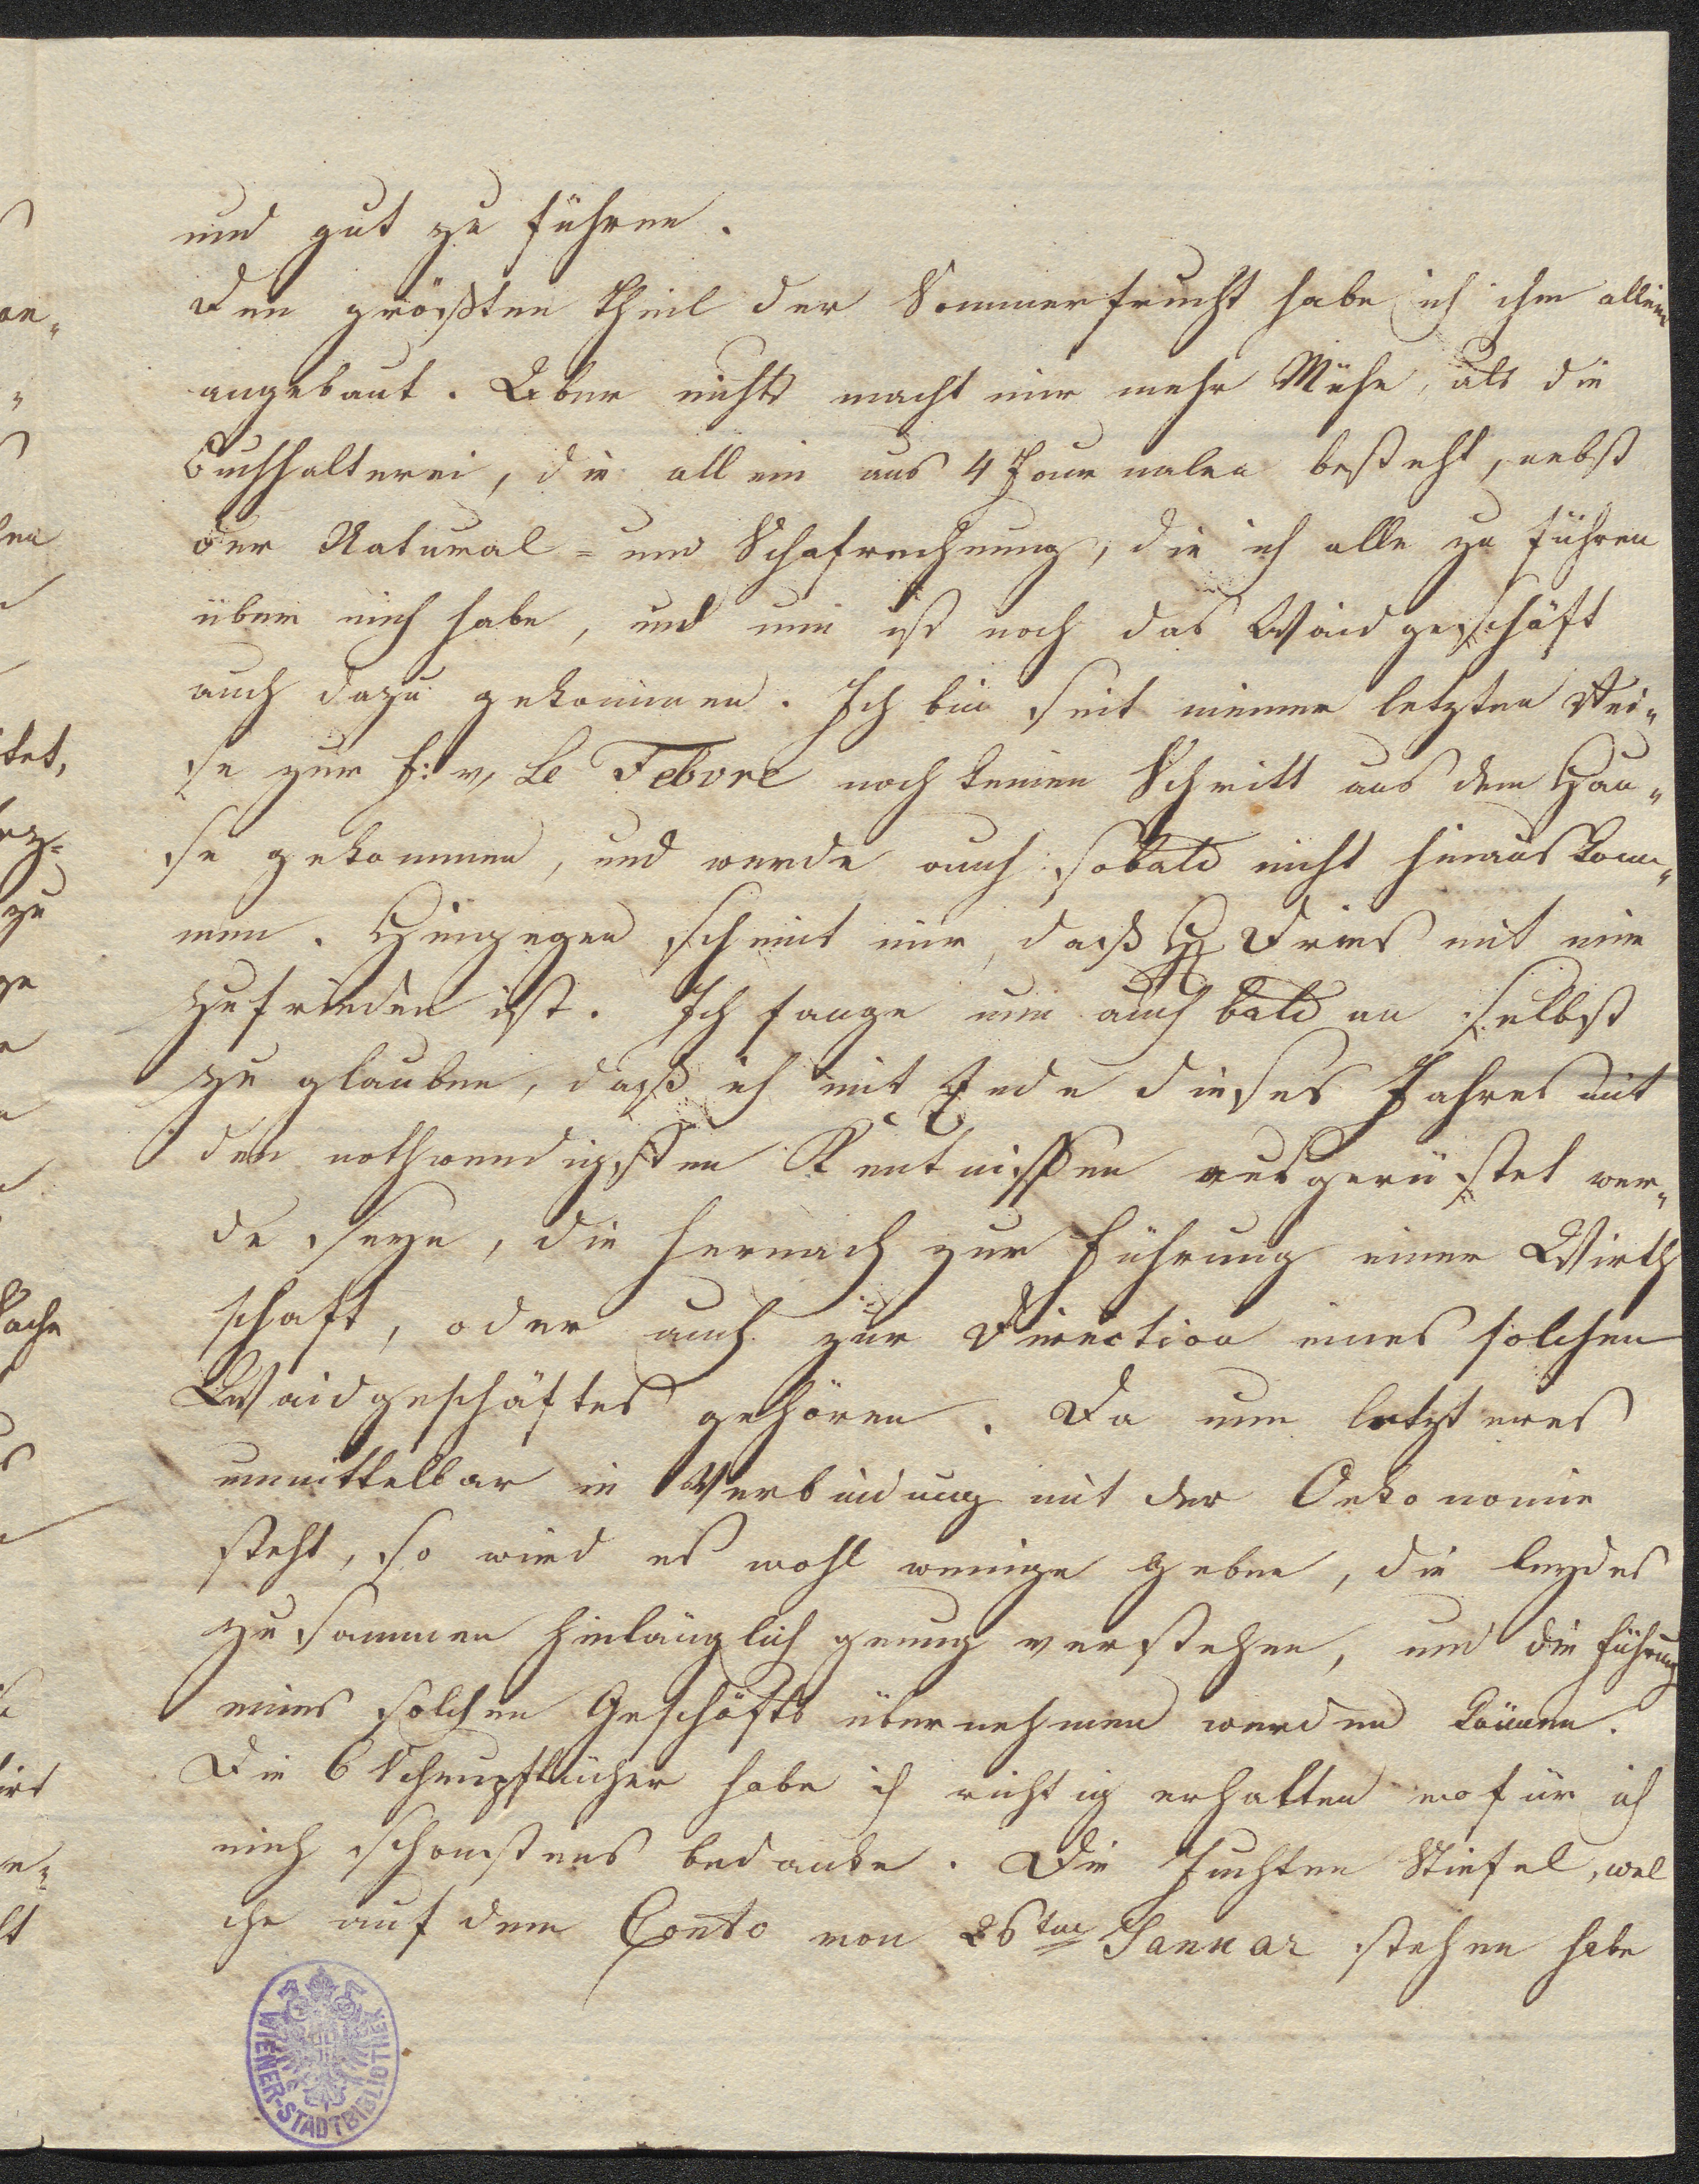 und gut zu führen.
Den größten Theil der Sommerfrucht habe ich ihm allein
angebaut. Aber nichts macht mir mehr Mühe, als die
Buchhalterei, die allein aus 4 Journalen besteht, nebst
der Natural- und Schafrechnung, die ich alle zu führen
über mich habe, und nun ist noch das Waidgeschäft
auch dazu gekommen. Ich bin seit meiner letzten Rei„
se zur F: v, Le Febvre noch keinen Schritt aus dem Hau„
se gekommen, und werde auch sobald nicht hinauskom„
men. Hingegen scheint mir, daß H Dries mit mir
zufrieden ist. Ich fange nun auch bald an selbst
zu glauben, daß ich mit Ende dieses Jahres mit
den nothwendigsten Kentnissen ausgerüstet wer„
de seyn, die hernach zur Führung einer Wirth
schaft, oder auch zur Direction eines solchen
Waidgeschäftes gehören. Da nun letzteres
unmittelbar in Verbindung mit der Oekonomie
steht, so wird es wohl wenige geben, die beydes
zusammen hinlänglich genug verstehen, und die Führung
eines solchen Geschäfts übernehmen werden können.
Die 6 Schnupftücher habe ich richtig erhalten wofür ich
mich schonstens bedanke. Die Juchten Stiefel, wel
che auf dem Conto von 26ten Januar stehen habe
WIENER-STADTBIBLIOTHEK